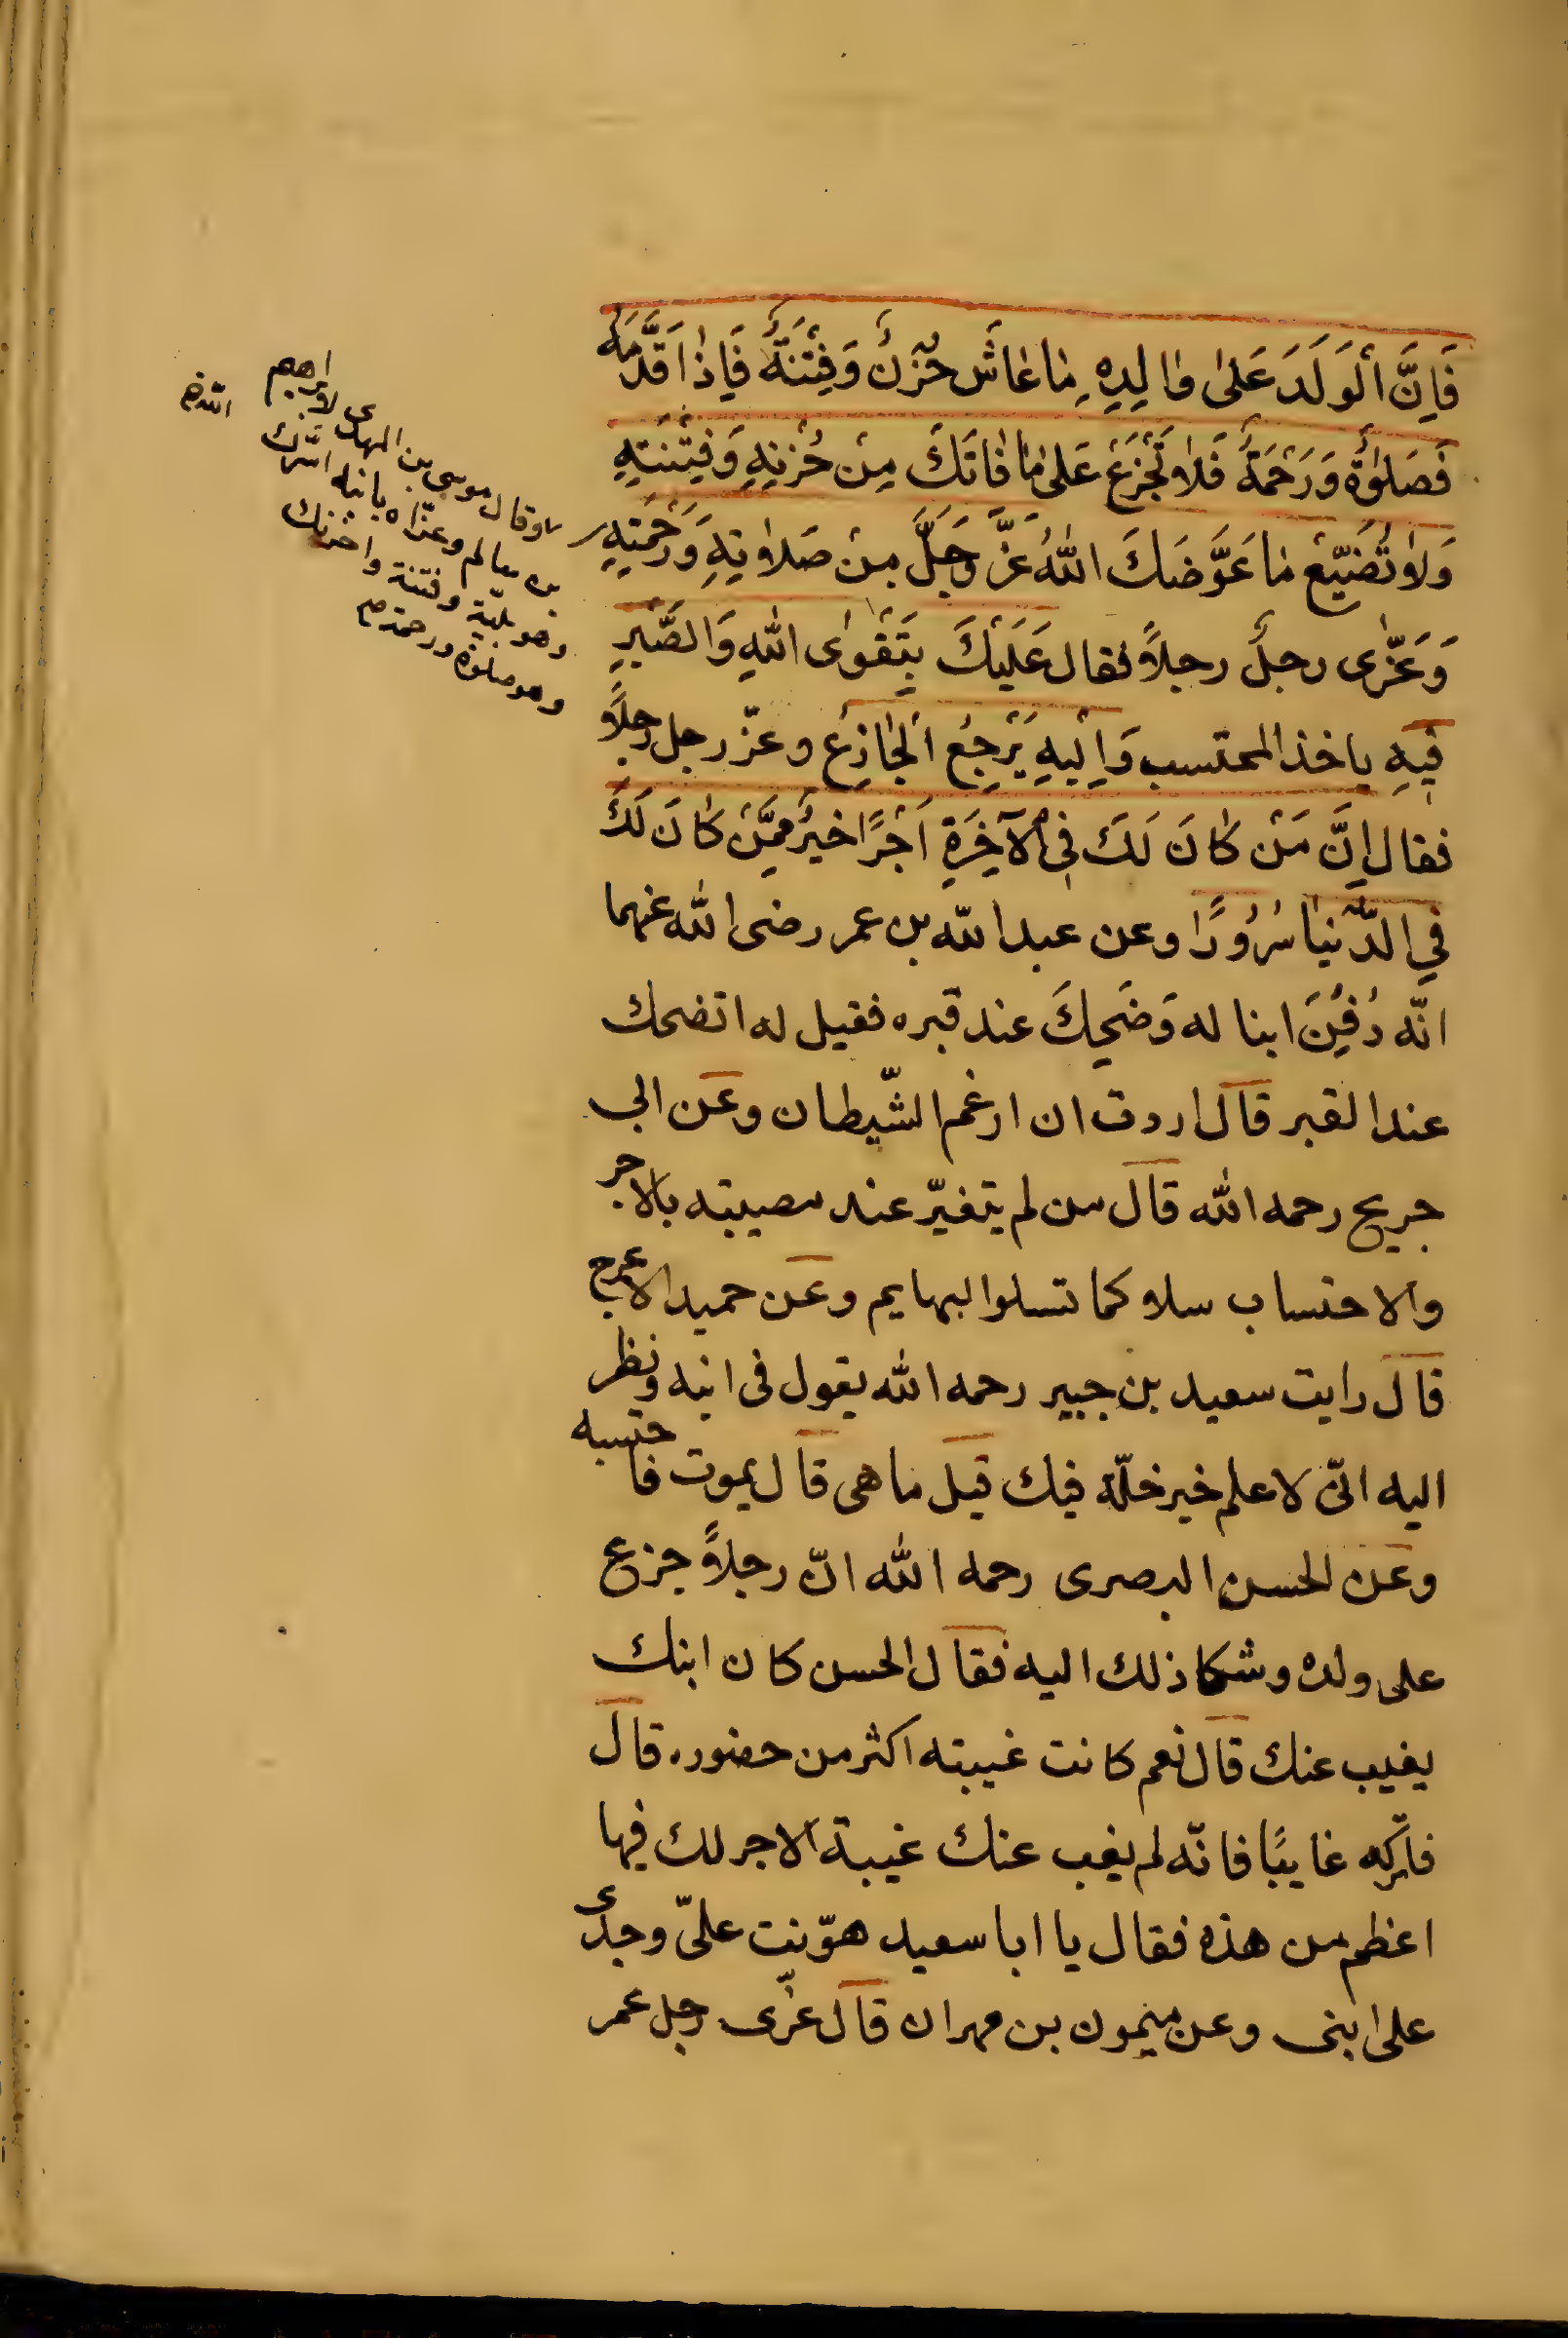 فَاِنَّ الْوَلَدَ عَلىٰ وٰالِدِهِ مٰا عٰاشَ حُزْنٌ وَفِتْنَةٌ فَاِذٰا قَدَّمَهُ
فَصَلوٰةٌ وَرَحْمَةٌ فَلاٰ تَجْزَعْ عَلىٰ مٰا فٰاتَكَ مِنْ حُزْنِهِ وَفِتْنَتِهِ
وَلاٰ تُضَيِّعْ مٰا عَوَّضَكَ اللّٰهُ عَزَّ وَجَلَّ مِنْ صَلاٰتِهِ وَرَحْمَتِهِ
وَعَزّٰى رجلٌ رجلاً فقال عَلَيْكَ بِتَقْوٰى اللّٰهِ وَالصَّبْرِ
فَبِهِ ياخذ المحتسب وَاِلَيْهِ يَرْجِعُ الْجٰازِعُ وعزّ رجل رجلاً
فقال اِنَّ مَنْ كٰانَ لَكَ فِى الْآخِرَةِ اَجْرًا خَيْرٌ مِمَّنْ كٰانَ لَكَ
فِي الدُّنْيٰا سُرُورًا وعن عبد اللّه بن عمر رضى اللّٰه عنهما
انّه دُفِنَ ابنا له وَضَحِكَ عند قبره فقيل له اتضحك
عند القبر قال اردت ان ارغم الشّيطان وعن ابى
جريح رحمه اللّٰه قال من لم يتغيّر عند مصيبته بالاجر
والاحتساب سلا كما تسلوا البهايم وعن حميد الاعرج
قال رايت سعيد بن جبير رحمه اللّٰه يقول فى ابنه ونظر
اليه انّى لاعلم خير خلّة فيك قيل ما هى قال يموت فاحتسبه
وعن الحسن البصرى رحمه اللّٰه انّ رجلاً جزع
على ولده وشكا ذلك اليه فقال الحسن كان ابنك
يغيب عنك قال نعم كانت غيبته اكثر من حضوره قال
فاتركه غايبًا فانّه لم يغب عنك غيبة الاجر لك فيها
اعظم من هذه فقال يا ابا سعيد هوّنت علىّ وجدى
على ابنى وعن ميمون بن مهران قال عزّى رجل عمر
وقال موسى بن المهدى لابراهيم
بن سالم وعزّاه بابنه اسرّك
وهو بليّة وفتنة واحزنك
وهو صلوٰة ورحمة